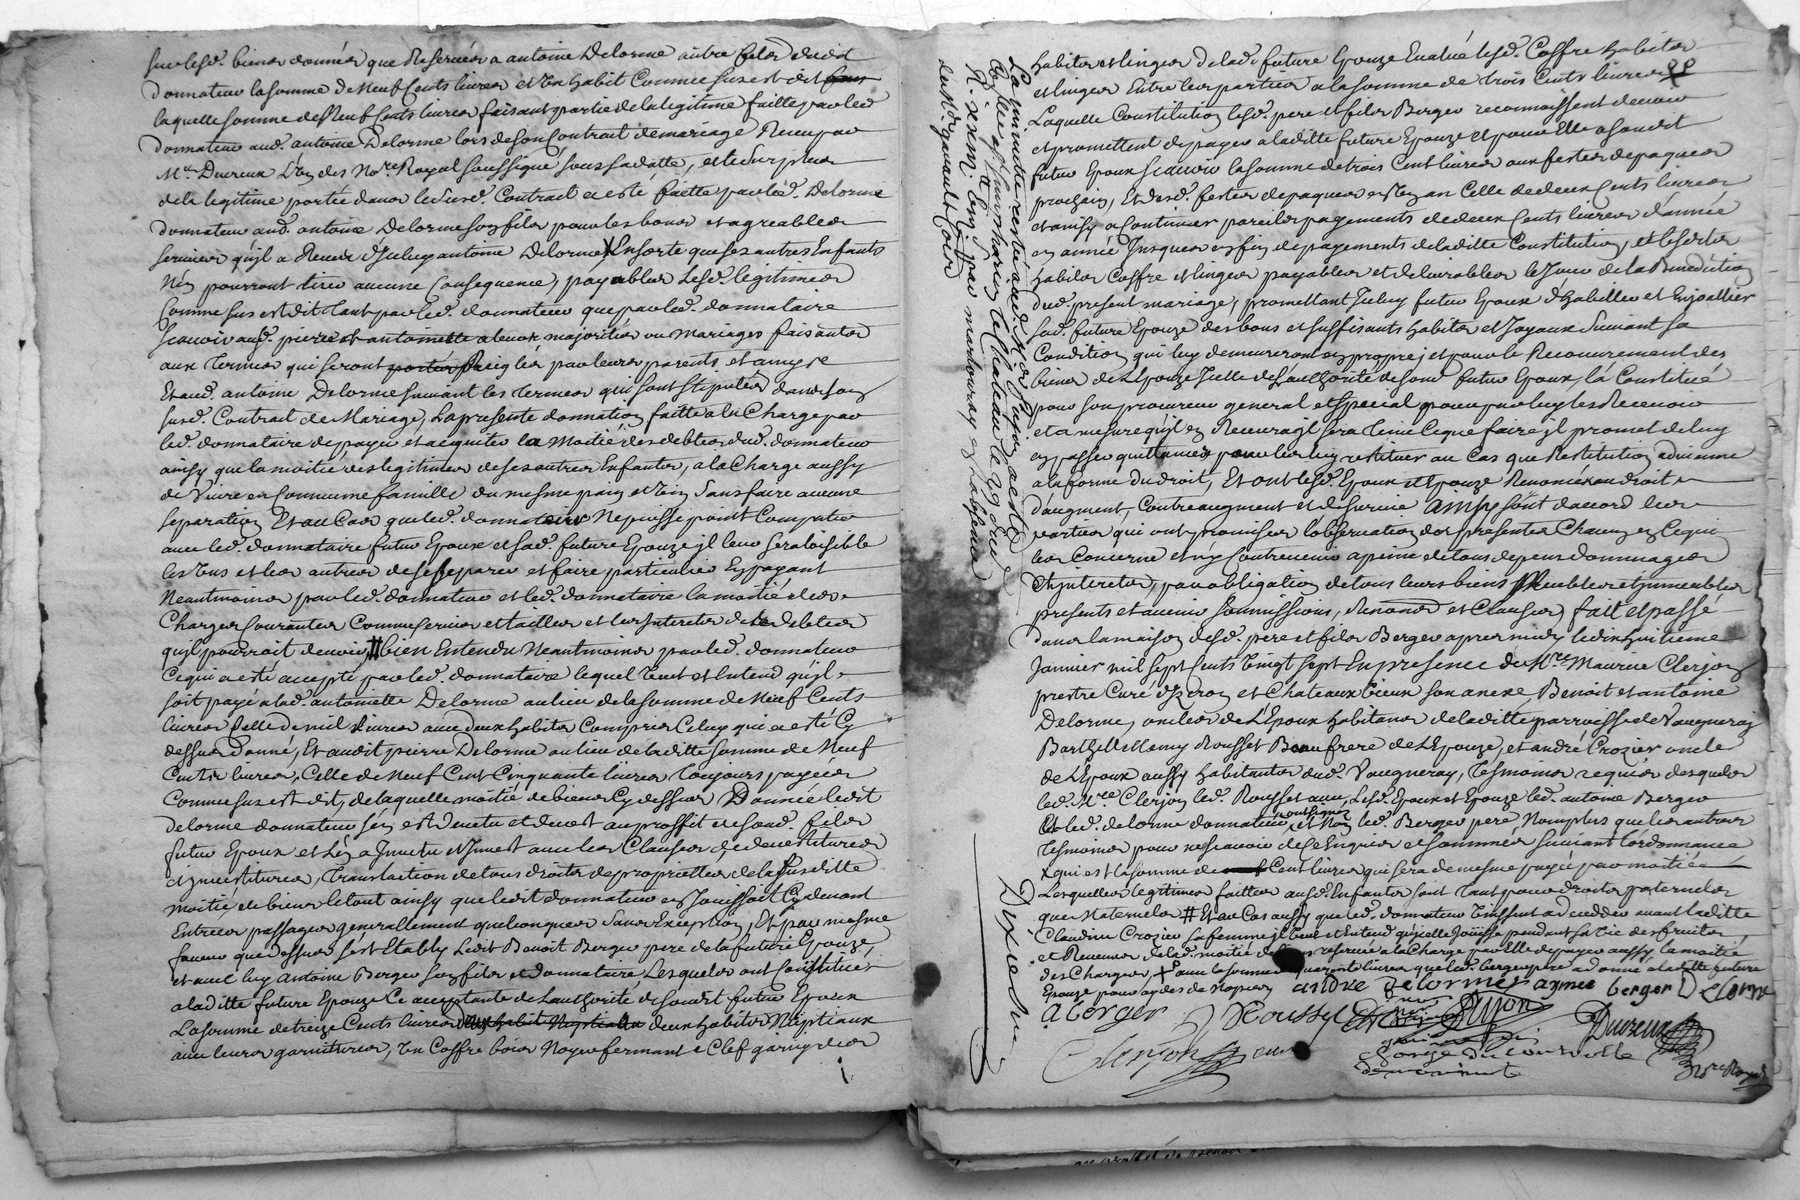 sur lesd. biens donnés que Reservés a antoine Delorme autre fils dudit
donnateur la somme de Neuf Cents livres et Un habit Comme sus est dit
laquelle somme de Neuf Cents livres faisant partie de la legitime faitte par led.
donnateur aud. antoine Delorme lors de son Contrat de mariage Receu par
Me. Duvreux L'un des No.res Royal soussigné sous sa datte, et le surplus
de la legitime portée dans le susd. Contract a esté faitte par led. Delorme
donnateur aud. antoine Delorme son fils pour les bons et agreables
services qu'il a Receus d'Iceluy antoine Delorme Ensorte que ses autres Enfants
N'en pourront tirer aucune Consequence, payables Lesd. legitimes
Comme sus est dit tant par led. donnateur que par led. donnataire
Scavoir ausd. pierre et antoinette a leurs majorités ou Mariages faisants
aux Termes qui seront Reiglés par leurs parents et amys
Et aud. antoine Delorme suivant les termes qui sont stipulés dans son
susd. Contract de Mariage, La presente donnation faitte a la Charge par
led. donnataire de payer et acquiter la Moitié des debtes dud. donnateur
ainsy que la moitié des legitimes de ses autres Enfants, a la Charge aussy
de Vivre en Commune famille du mesme pain et Vin sans faire aucune
separation Et au Cas que led. donnateur Ne puisse point Compatir
avec led. donnataire futur Epoux et sad. future Epouze il leur sera loisible
les Uns et les autres de se separer et faire particulier En payant
Neantmoins par led. donnateur et led. donnataire la moitié des
Charges Courantes Comme services et tailles et les Interets des debtes
qu'il pourroit devoir, # bien Entendu Neantmoins par led. donnateur
Ce qui a esté accepté par led. donnataire lequel Veut et Entend qu'il
soit payé a lad. antoinette Delorme au lieu de la somme de Neuf Cents
livres Celle de mil livres avec deux habits Compris Celuy qui a esté Cy
dessus donné, Et audit pierre Delorme au lieu de laditte somme de Neuf
Cents livres, Celle de Neuf Cent Cinquante livres Toujours payées
Comme sus est dit, de laquelle moitié de biens Cy dessus Donnée ledit
delorme donnateur s'en est devetu et devest au proffit de sond. fils
futur Epoux et L'en a Invetu et Invest avec les Clauses de devestitures
et Investitures, Translaction de tous droits de proprietes de la susditte
moitié de biens le tout ainsy que ledit donnateur en Jouissoit Cy devant
Entrées passages generallement quelconques sans Exception, Et par mesme
faveur que dessus s'est Etably Ledit Benoit Berger pere de la future Epouze,
et avec luy Antoine Berger son fils et donnataire Lesquels ont Constitué
a laditte future Epouze Ce acceptante de L'authorité dudit futur Epoux
La somme de treize Cents livres deux habits Nuptiaux
avec leurs garnitures, Un Coffre bois Noyer fermant a Clef garny des
habits et linges de lad. future Epouze Evalué lesd. Coffre habits
et linges Entre les parties a la somme de trois Cents livres
Laquelle Constitution lesd. pere et fils Berger reconnoissent devoir
et promettent de payer a laditte future Epouze et pour Elle a sondit
futur Epoux scavoir la somme de trois Cent livres aux festes de paques
prochain, Et desd. festes de paques en Un an Celle de deux Cents livres
et ainsy a Continuer pareils payements de deux Cents livres d'année
en année Jusques en fin de payements de laditte Constitution, et lesdits
habits Coffre et linges payables et delivrables le Jour de la Benediction
dud. present mariage, promettant Iceluy futur Epoux d'habiller et Enjoallier
sad. future Epouze des bons et suffisants habits et Joyaux Suivant sa
Condition qui luy demeureront en propre, et pour le Recouvrement des
biens de L'Epouze Icelle de L'authorité de sond. futur Epoux, la Constitué
pour son procureur general et special pour par luy les Recevoir
et a mesure qu'il en Recevra il sera Tenu Ce que faire il promet de luy
en passer quittances pour les luy restituer au Cas que Restitution advienne
a la forme du droit, Et ont lesd. Epoux et Epouze Renoncés au droit
d'augment, Contreaugment et de survie ainsy sont d'accord les
parties qui ont promis l'observation des presentes Chacun en Ce qui
les Concerne et n'y Contrevenir a peine de tous depens dommages
et Interets, par obligation de tous leurs biens Meubles et immeubles
presents et avenir soumissions, Renoncé et Clauses, fait et passé
dans la maison desd. pere et fils Berger apres midy le dix huitieme
Janvier mil sept Cents Vingt sept En presence de Mre. Maurice Clerjon
prestre Curé d'Izeron et Chateauxvieux son anexe Benoit et antoine
Delorme, oncles de L'Epoux habitans de laditte parroisse de Vaugneray
Barthellemy Rousset Beaufrere de L'Epouze, et andré Crozier oncle
de L'Epoux aussy habitants dud. Vaugneray, Tesmoins requis desquels
led. Mre. Clerjon led. Rousset avec Lesd. Epoux et Epouze led. antoine Berger
Et led. delorme donnateur ont signé et Non led. Berger pere Nomplus que les autres
Tesmoins pour ne scavoir de ce Enquis et sommés suivant L'ordonnance
X qui est la somme de Cent livres qui sera de mesme payée par moitié
Lesquelles legitimes faittes ausd. Enfants sont tant pour droits paternels
que Maternels # Et au Cas aussy que led. donnateur Vinssent a deceder avant laditte
Claudine Crozier sa femme il Veut et Entend qu'elle Jouisse pendant sa vie des fruits
et Revenus de lad. moitié de biens reservée a la Charge par Elle de payer aussy la moitié
des Charges, + avec la somme quarante livres que led. berger pere a donné a laditte future
Epouze pour aydes de Noyer andre Delorme aymé berger Delorme
A berger J Rousset Dujon Duvreux
Clerjon curé
Nre Royal
La minutte reste a Me. Dujon aesté
Controllé
Duvreux